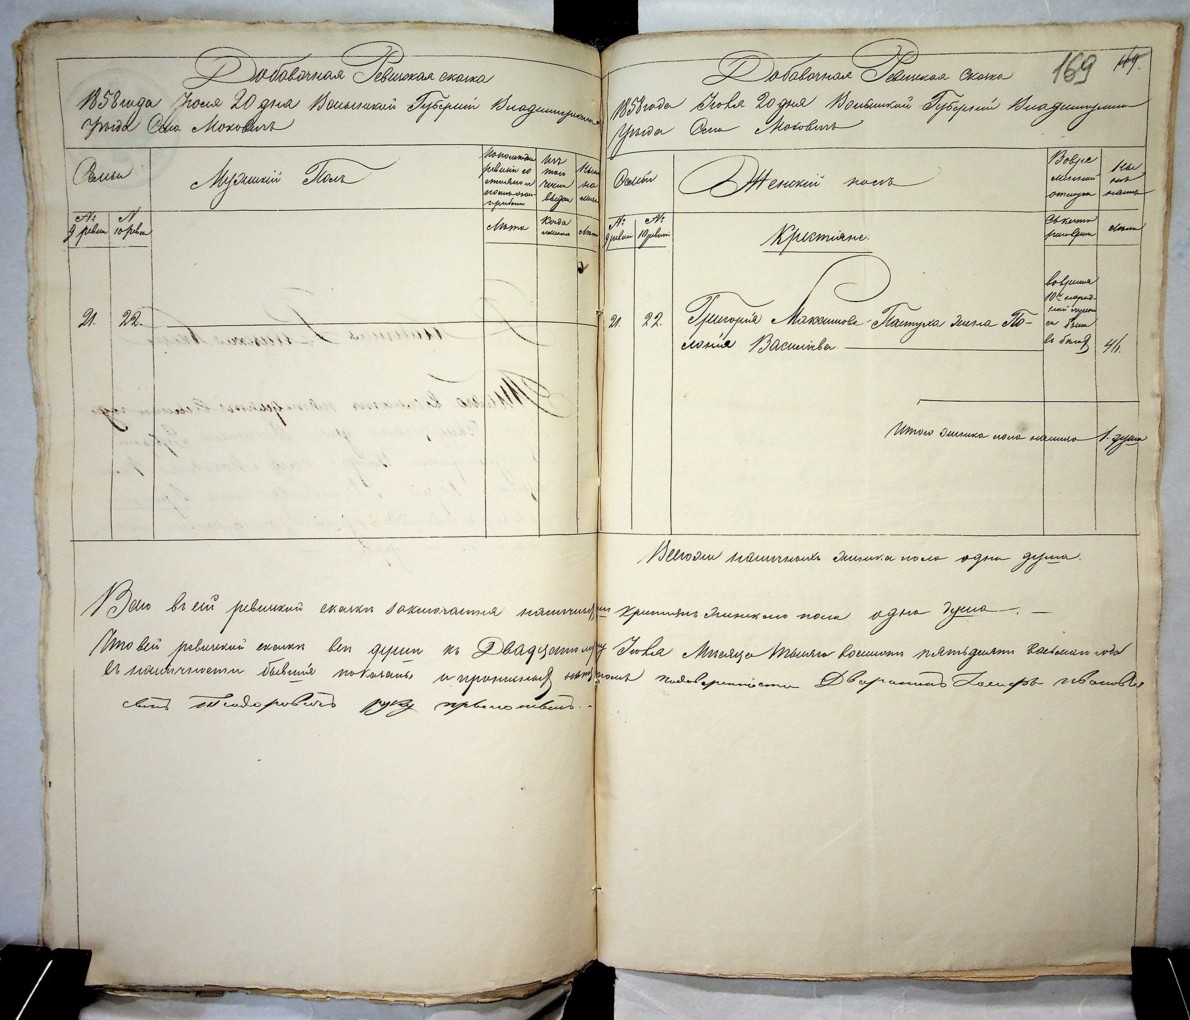 Добавочная Ревизкая сказка
1858 года Іюля 20 дня Волынской Губерніи Владимирскаго
Уѣзда Села Маковичь
Семьи
Мужескій Полъ
№ 9 ревиз
№ 10 ревиз
Лѣта
Когда имянно
Лѣта
21. 22.
169
169.
Добавочная Ревизкая Сказка
1858 года Іюля 20 дня Волынской Губерніи Владимирскаго
Уѣзда Села Маковичь
Семьи
Женскій полъ
Во время
временной
отлучки
Ны
нѣ
на лицо
№ 9 ревиз
№ 10 ревиз
Крестьяне.
Лѣта
21. 22. Григорія Максимова Пастуха жена Пе-
лагія Василіева 46.
Итого женска пола на лицо 1. душа
Всего же наличныхъ женска пола одна душа.
Всего въ сей ревизкой сказки заключается наличныхъ крестьянъ женскаго пола одна душа. —
Что въ сей ревизкой сказки все души къ Двадцатому Іюля Мѣсяца тысяча восемсотъ пятьдесятъ восьмаго года
въ наличности бывшія показаны и прописныхъ нѣтъ въ томъ по довѣренности Дворянинъ
руку приложилъ. -